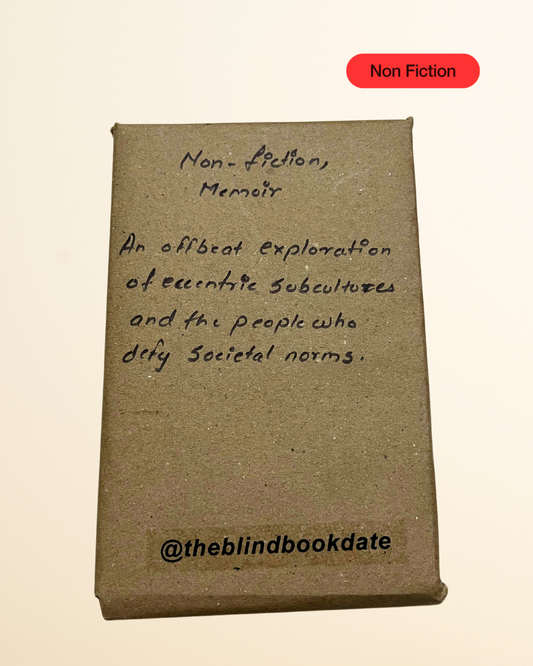 Non Fiction
Non-fiction,
Memoir
An offbeat exploration
of eccentric subcultures
and the people who
defy societal norms.
@theblindbookdate